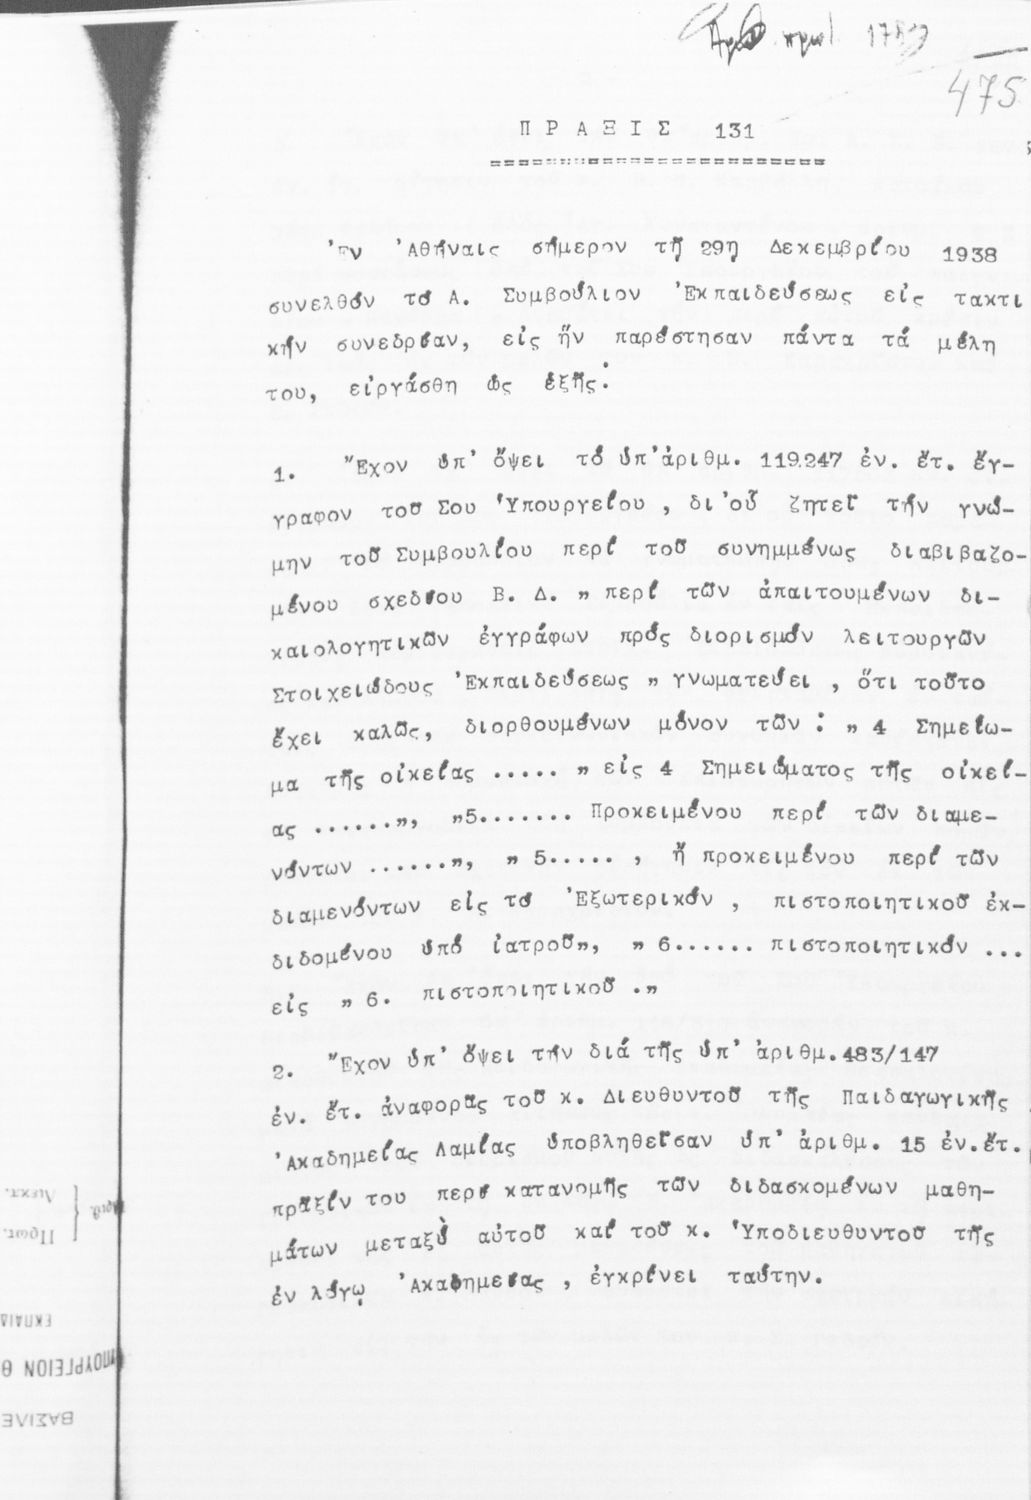 Ἀριθ. πρωτ.
475
ΠΡΑΞΙΣ 131
Ἐν Ἀθήναις σήμερον τῇ 29ῃ Δεκεμβρίου 1938
συνελθόν τό Α. Συμβούλιον Ἐκπαιδεύσεως εἰς τακτι
κήν συνεδρίαν, εἰς ἥν παρέστησαν πάντα τά μέλη
του, εἰργάσθη ὡς ἑξῆς:
1. Ἔχον ὑπ' ὄψει τό ὑπ' ἀριθμ. 119.247 ἐν. ἔτ. ἔγ-
γραφον τοῦ Σου Ὑπουργείου, δι' οὗ ζητεῖ τήν γνώ-
μην τοῦ Συμβουλίου περί τοῦ συνημμένως διαβιβαζο-
μένου σχεδίου Β. Δ. „ περί τῶν ἀπαιτουμένων δι-
καιολογητικῶν ἐγγράφων πρός διορισμόν λειτουργῶν
Στοιχειώδους Ἐκπαιδεύσεως „ γνωματεύει, ὅτι τοῦτο
ἔχει καλῶς, διορθουμένων μόνον τῶν: „ 4 Σημείω-
μα τῆς οἰκείας ..... „ εἰς 4 Σημειώματος τῆς οἰκεί-
ας ......„, „5....... Προκειμένου περί τῶν διαμε-
νόντων ......„, „ 5....., ἤ προκειμένου περί τῶν
διαμενόντων εἰς τό Ἐξωτερικόν, πιστοποιητικοῦ ἐκ-
διδομένου ὑπό ἰατροῦ„, „ 6...... πιστοποιητικόν ...
εἰς „ 6. πιστοποιητικοῦ .„
2. Ἔχον ὑπ' ὄψει τήν διά τῆς ὑπ' ἀριθμ. 483/147
ἐν. ἔτ. ἀναφορᾶς τοῦ κ. Διευθυντοῦ τῆς Παιδαγωγικῆς
Ἀκαδημείας Λαμίας ὑποβληθεῖσαν ὑπ' ἀριθμ. 15 ἐν. ἔτ.
πρᾶξίν του περί κατανομῆς τῶν διδασκομένων μαθη-
μάτων μεταξὺ αὐτοῦ καί τοῦ κ. Ὑποδιευθυντοῦ τῆς
ἐν λόγῳ Ἀκαδημείας, ἐγκρίνει ταύτην.
Διεκπ.
Πρωτ.
Ἀριθ.
ΕΚΠΑΙΔ
ΥΠΟΥΡΓΕΙΟΝ Θ
ΒΑΣΙΛΕ